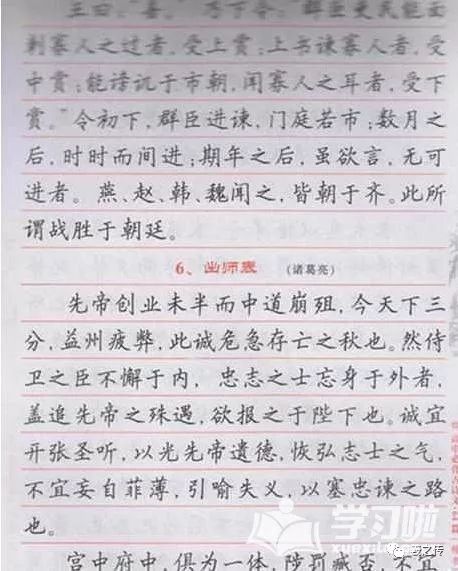 王曰：“善。”乃下令：“群臣吏民能面
刺寡人之过者，受上赏；上书谏寡人者，受
中赏；能谤讥于市朝，闻寡人之耳者，受下
赏。”令初下，群臣进谏，门庭若市；数月之
后，时时而间进；期年之后，虽欲言，无可
进者。燕、赵、韩、魏闻之，皆朝于齐。此所
谓战胜于朝廷。
6、出师表 （诸葛亮）
先帝创业未半而中道崩殂，今天下三
分，益州疲弊，此诚危急存亡之秋也。然侍
卫之臣不懈于内，忠志之士忘身于外者，
盖追先帝之殊遇，欲报之于陛下也。诚宜
开张圣听，以光先帝遗德，恢弘志士之气，
不宜妄自菲薄，引喻失义，以塞忠谏之路
也。
宫中府中，俱为一体，陟罚臧否，不宜
学习啦
www.xuexila.com